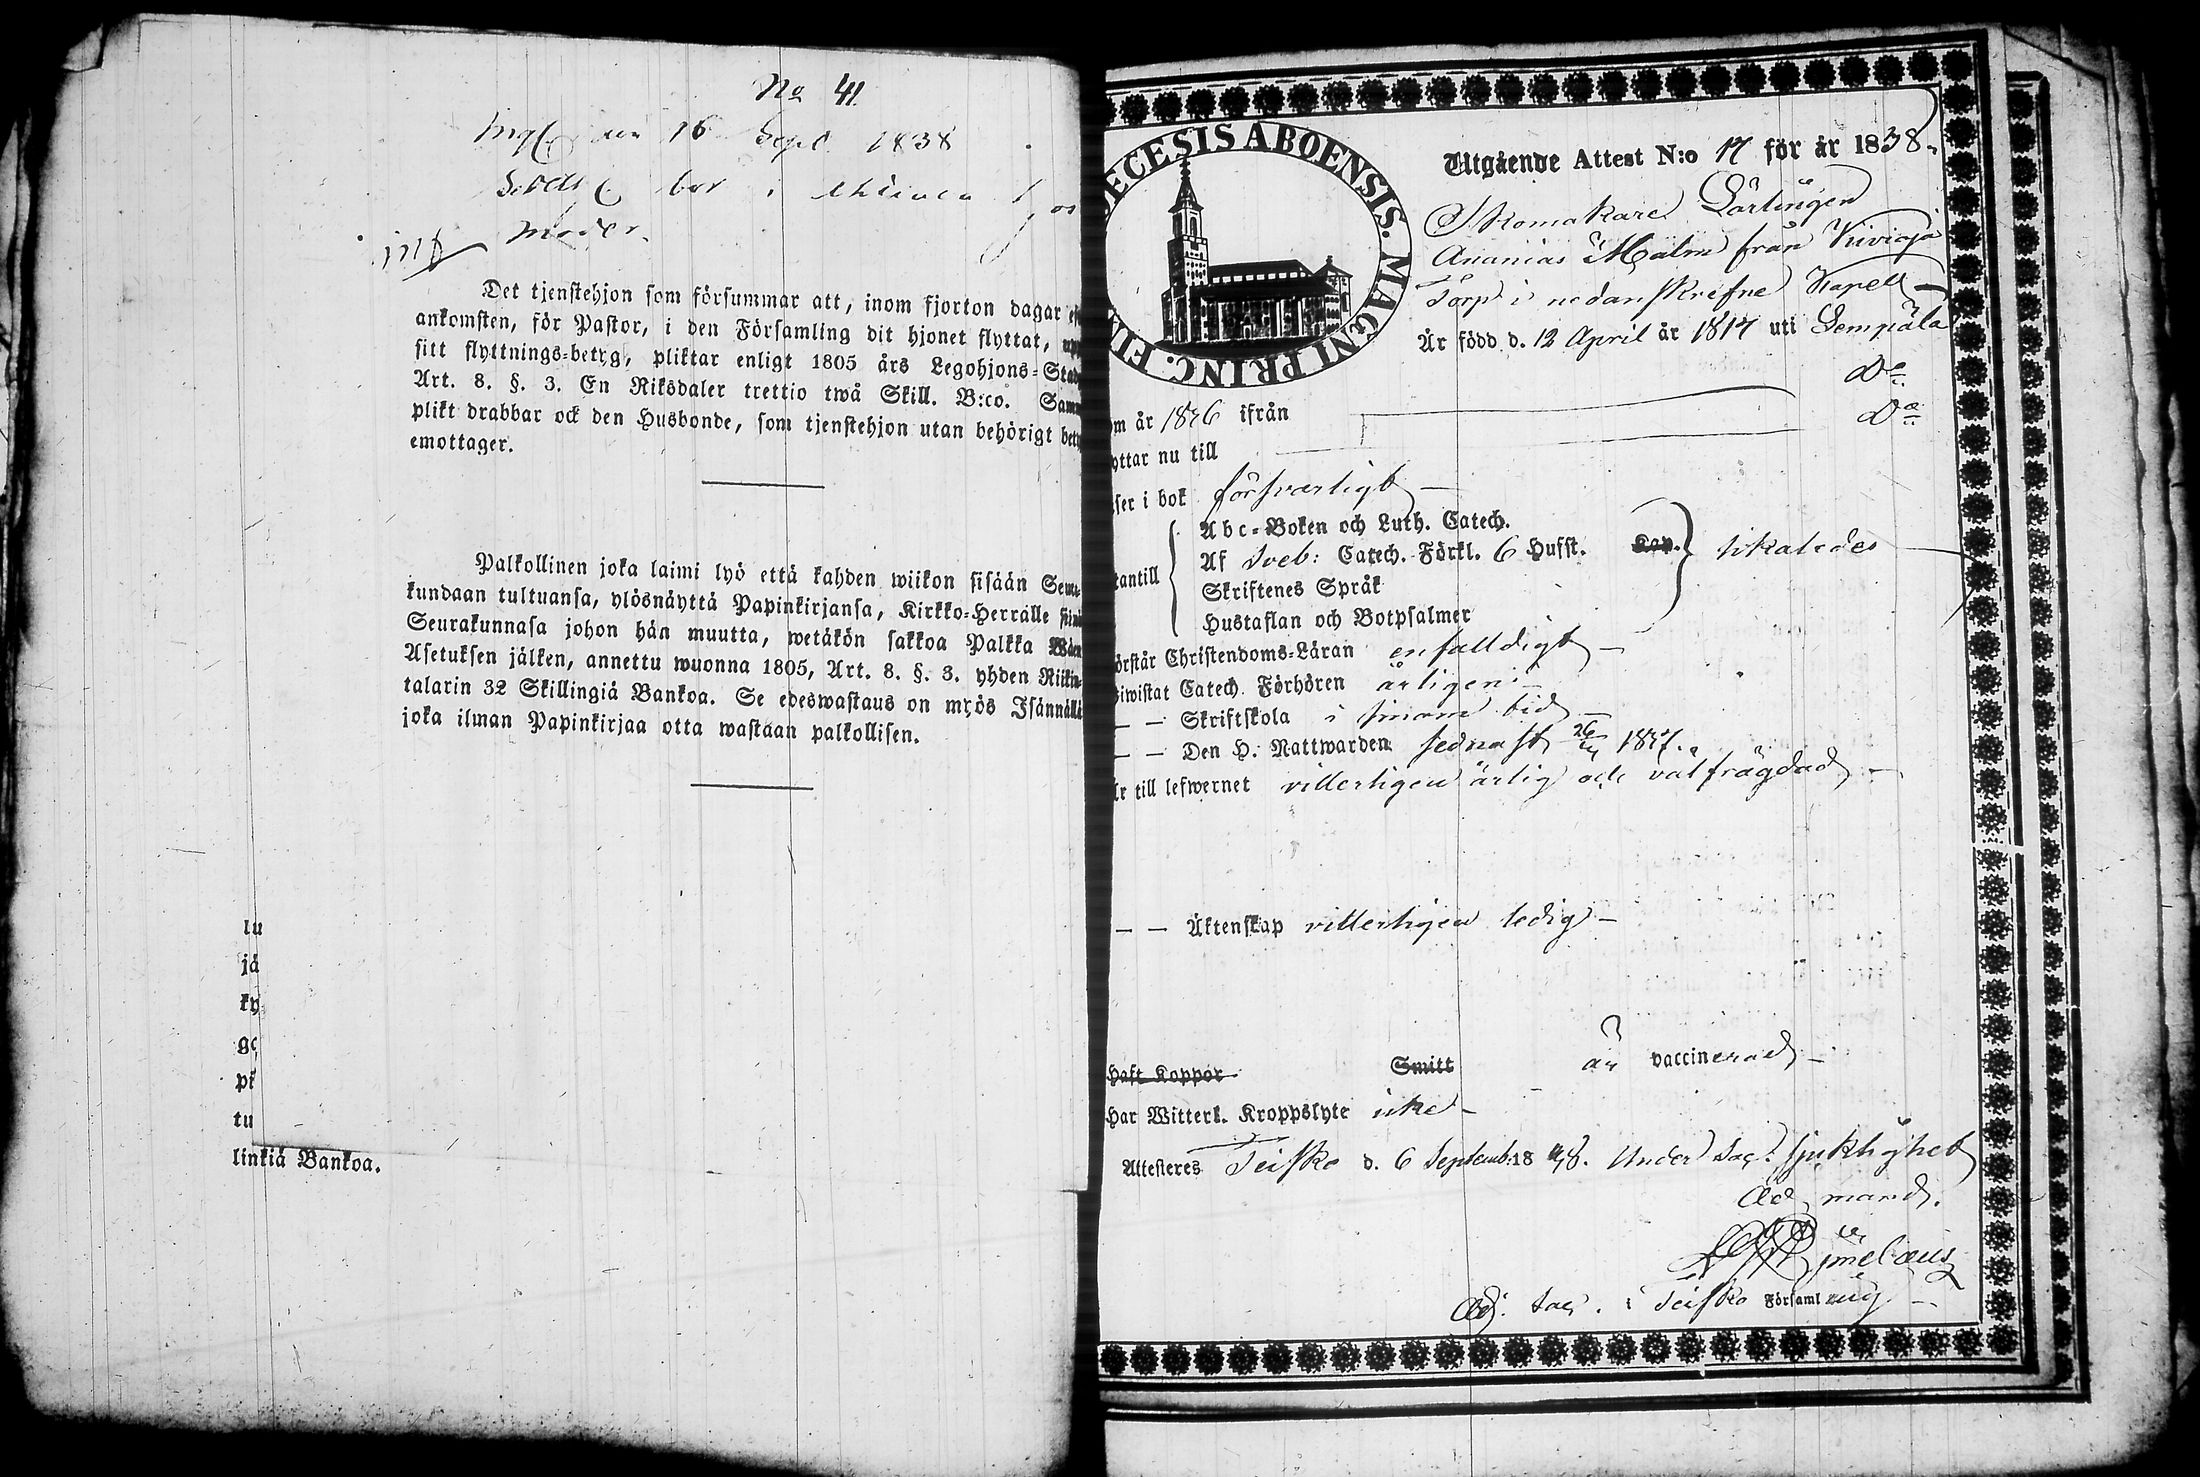 No 41.
den 16 Sept 1838
bor i
moder.
Det tjenstehjon som försummar att, inom fjorton dagar ef
ankomsten, för Pastor, i den Församling dit hjonet flyttat, upp
sitt flyttnings-betyg, pliktar enligt 1805 års Legohjons-Stad
Art. 8. §. 3. En Riksdaler trettio twå Skill. B:co. Samm
plikt drabbar ock den Husbonde, som tjenstehjon utan behörigt bety
emottager.
Palkollinen joka laimi lyö että kahden wiikon sisään Seura-
kundaan tultuansa, ylösnäyttä Papinkirjansa, Kirkko-Herralle siinä
Seurakunnasa johon hän muutta, wetäkön sakkoa Palkka Wäen
Asetuksen jälken, annettu wuonna 1805, Art. 8. §. 3. yhden Riikin-
talarin 32 Skillingiä Bankoa. Se edeswastaus on myös Isännällä
joka ilman Papinkirjaa otta wastaan palkollisen.
lu
jä
ky
ge
pi
tu
linkiä Bankoa.
ECESIS ABOENSIS. MAGNI PRINC. FI
Utgående Attest N:o 17 för år 1838.
Skomakare Lärlingen
Ananias Malm från Kivioja
Torp i nedanskrefne Kapell
Är född d. 12 April år 1817 uti Lempäla
om år 1826 ifrån Do
yttar nu till Do
ser i bok försvarligt
Abc-Boken och Luth. Catech.
Af Sveb: Catech. Förkl. 6 Hufst. Kap. likaledes
tantill
Skriftenes Språk
Hustaflan och Botpsalmer
örstår Christendoms-Läran enfalldigt
iwistat Catech. Förhören årligen
— — Skriftskola i sinom tid
— — Den H. Nattwarden sednast 26
är till lefwernet vitterligen ärlig och välfrägdad
— — Äktenskap vitterligen ledig
Haft Koppor Smitt är vaccinerad
Har Witterl. Kroppslyte icke
Attesteres Teisko d. 6 Septemb: 18 38. Under Sac: sjuklighet
Ad mand.
Adj. Sac. i Teisko Församling